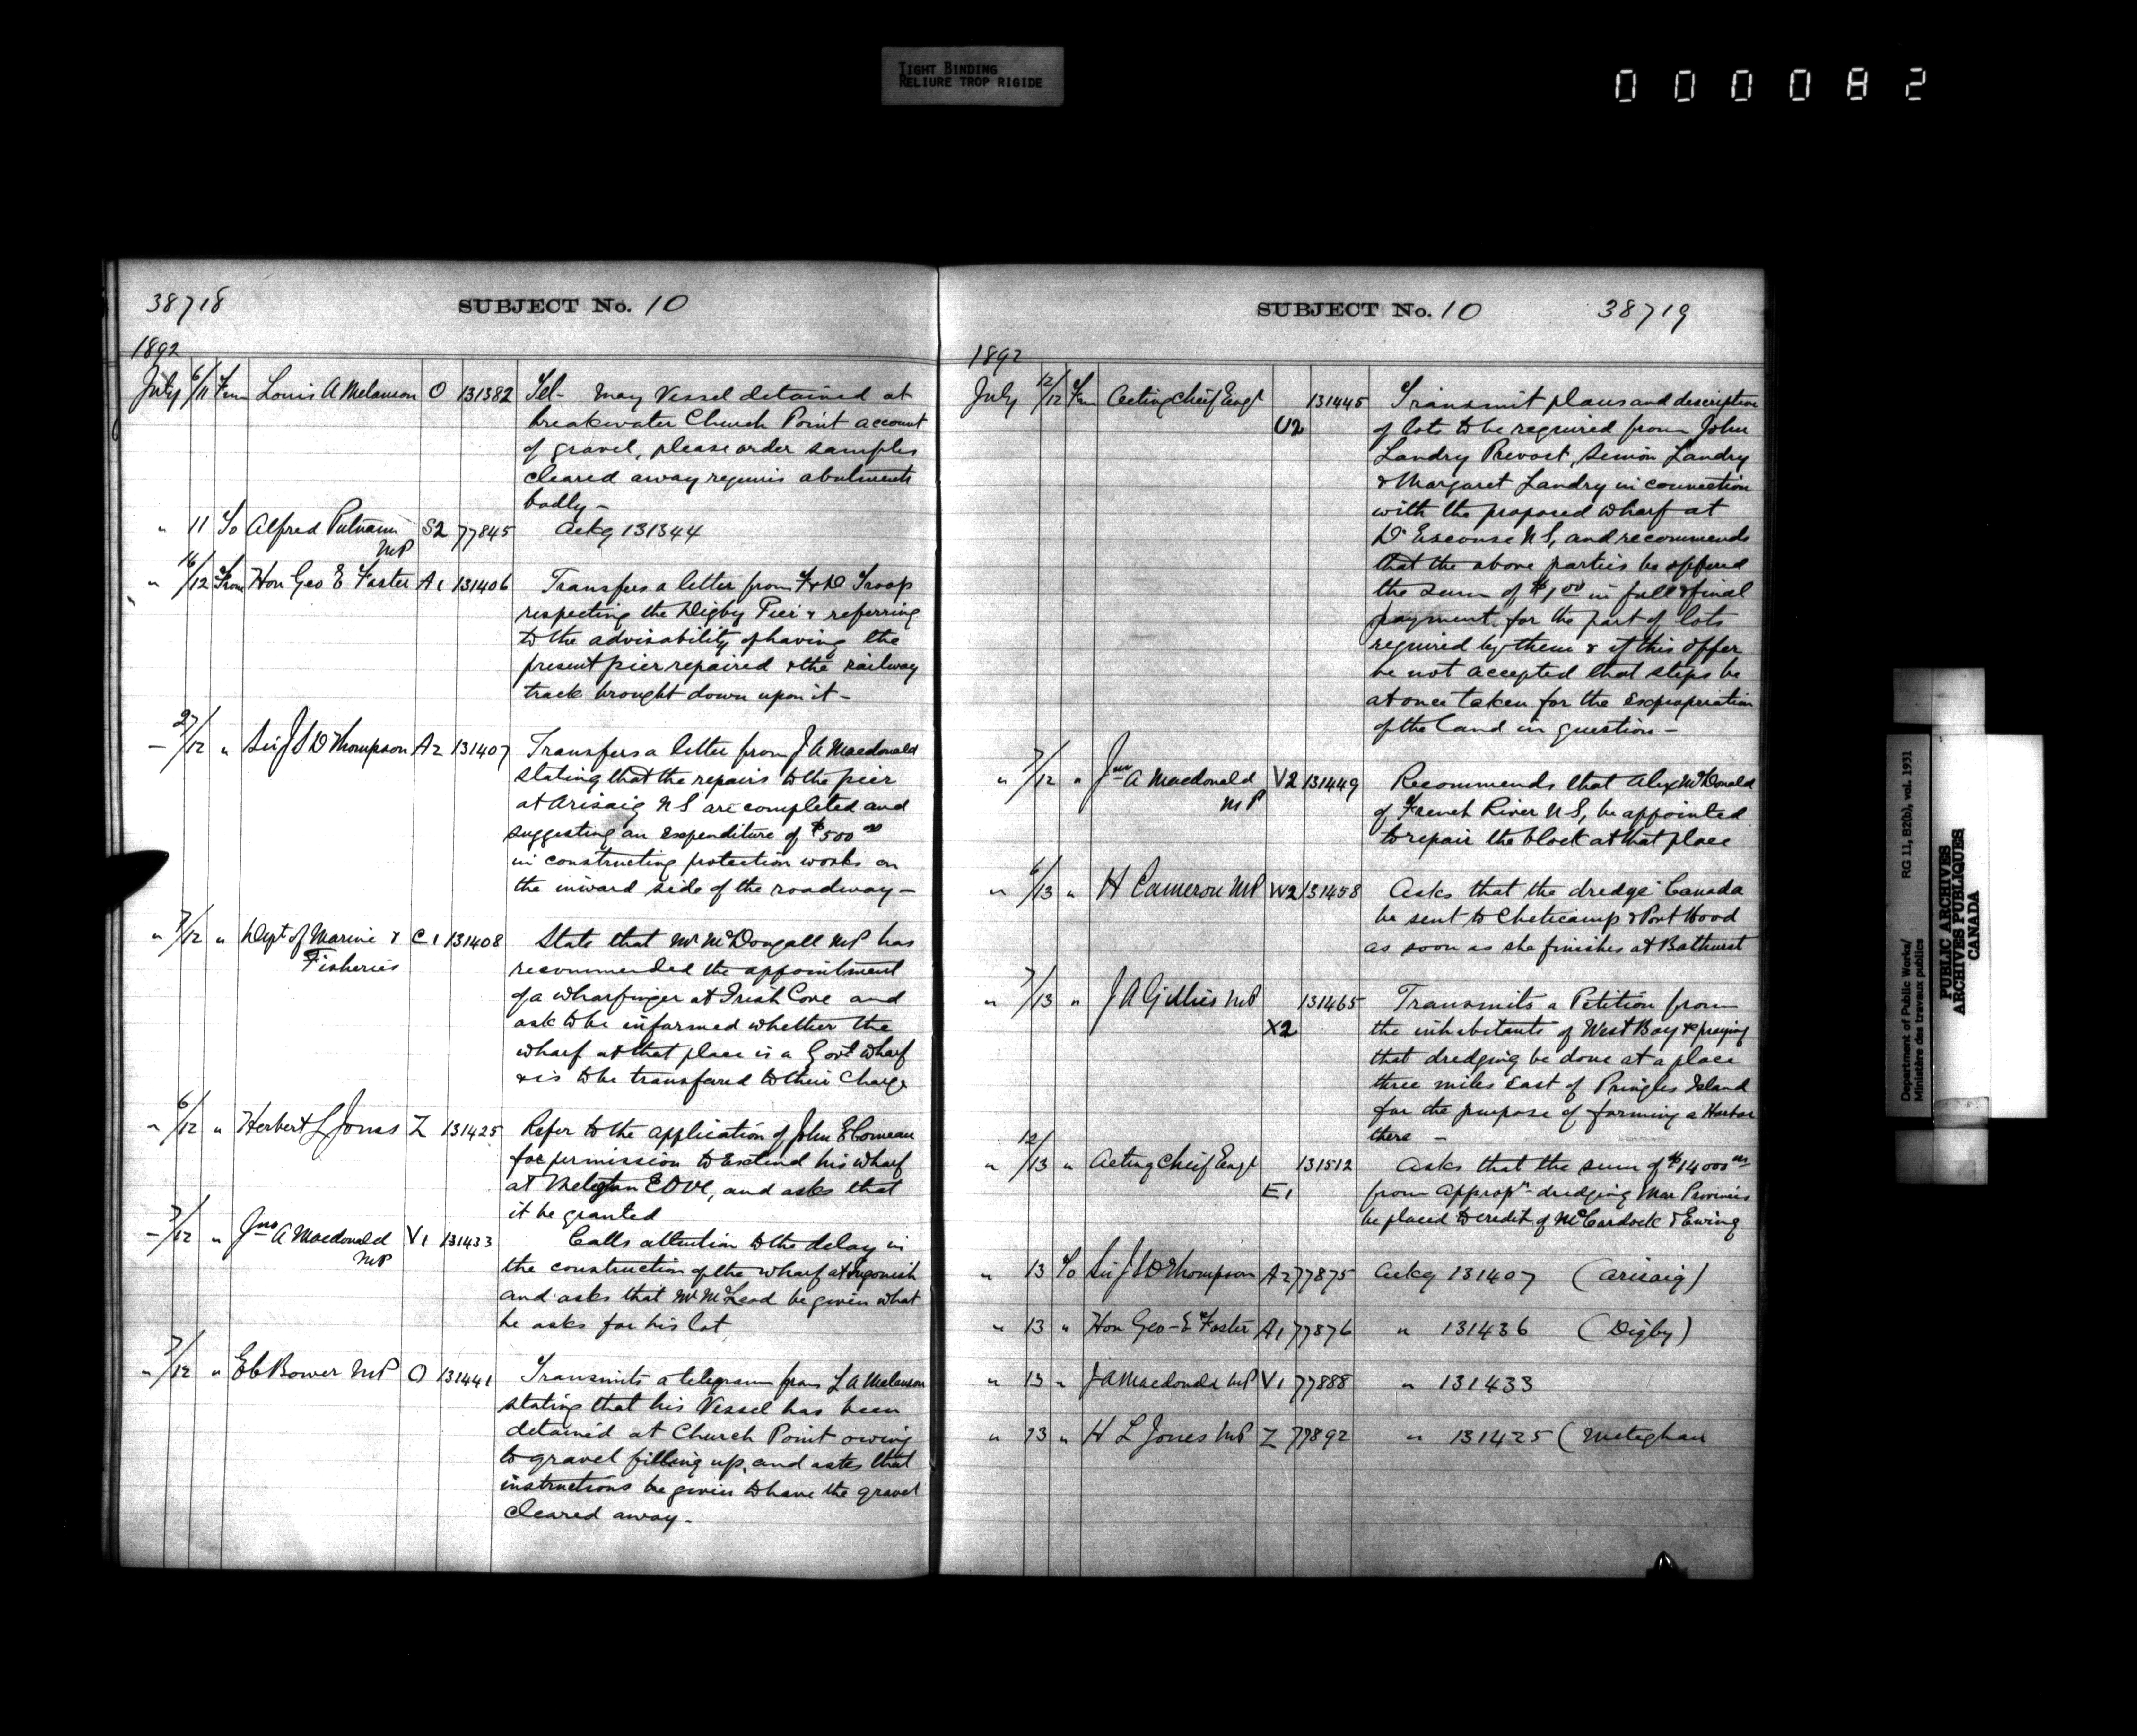 TIGHT BINDING
RELIURE TROP RIGIDE
000082
38718 SUBJECT No. 10
1892
July 6/11 From Louis A Melanson O 131382 Tel- May Vessel detained at
breakwater Church Point account
of gravel, please order samples
cleared away requires abutments
badly -
" 11 To Alfred Putnam MP S2 77845 Ackg 131344
" 16/12 From Hon Geo E Foster A1 131406 Transfers a letter from F & D Troop
respecting the Digby Pier & referring
to the advisability of having the
present pier repaired & the railway
track brought down upon it -
- 27/12 " Sir J S D Thompson A2 131407 Transfers a letter from J A Macdonald
stating that the repairs to the pier
at Arisaig N S are completed and
suggesting an expenditure of $500 00
in constructing protection works on
the inward side of the roadway -
" 7/12 " Dept of Marine & Fisheries C1 131408 State that Mr McDougall MP has
recommended the appointment
of a wharfinger at Irish Cove and
ask to be informed whether the
wharf at that place is a Govt wharf
& is to be transferred to their charge
" 6/12 " Herbert L Jones Z 131425 Refer to the application of John E Comeau
for permission to Extend his wharf
at Meteghan COVE, and asks that
it be granted
- 7/12 " Jno A Macdonald MP V1 131433 Calls attention to the delay in
the construction of the wharf at Ingonish
and asks that Mr McLeod be given what
he asks for his lot
" 7/12 " E C Bower MP O 131441 Transmits a telegram from L A Melanson
stating that his Vessel has been
detained at Church Point owing
to gravel filling up, and asks that
instructions be given to have the gravel
cleared away -
SUBJECT No. 10 38719
1892
July 12/12 From Acting Chief Engr U2 131445 Transmit plans and description
of lots to be required from John
Landry Prevost, Simon Landry
& Margaret Landry in connection
with the proposed wharf at
D'Escouse N S, and recommends
that the above parties be offered
the sum of $1 00 in full & final
payment for the part of lots
required by them & if this offer
be not accepted that steps be
at once taken for the expropriation
of the land in question -
" 7/12 " Jno A Macdonald MP V2 131449 Recommends that Alex McDonald
of French River N S, be appointed
to repair the block at that place
" 6/13 " H Cameron MP W2 131458 Asks that the dredge Canada
be sent to Cheticamp & Port Hood
as soon as she finishes at Bathurst
" 7/13 " J A Gillies MP X2 131465 Transmits a Petition from
the inhabitants of West Bay & praying
that dredging be done at a place
three miles East of Pringles Island
for the purpose of forming a Harbor
there -
" 12/13 " Acting Chief Engr E1 131512 Asks that the sum of $14000 00
from appropn - dredging Mar Provinces
be placed to credit of McCardock & Ewing
" 13 To Sir J S D Thompson A2 77875 Ackg 131407 (Arisaig)
" 13 " Hon Geo - E Foster A1 77876 " 131436 (Digby)
" 13 " J A Macdonald MP V1 77888 " 131433
" 13 " H L Jones MP Z 77892 " 131425 (Meteghan
Department of Public Works/ RG 11, B2(b), vol. 1931
Ministère des travaux publics
PUBLIC ARCHIVES
ARCHIVES PUBLIQUES
CANADA